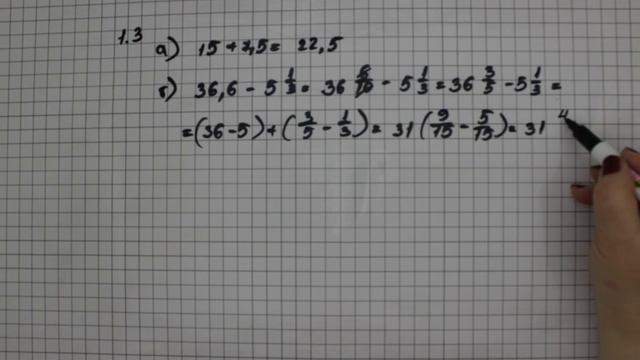 1.3
а) 15 + 7,5 = 22,5
б) 36,6 - 5 1/3 = 36 6/10 - 5 1/3 = 36 3/5 - 5 1/3 =
= (36 - 5) + (3/5 - 1/3) = 31 (9/15 - 5/15) = 31 4